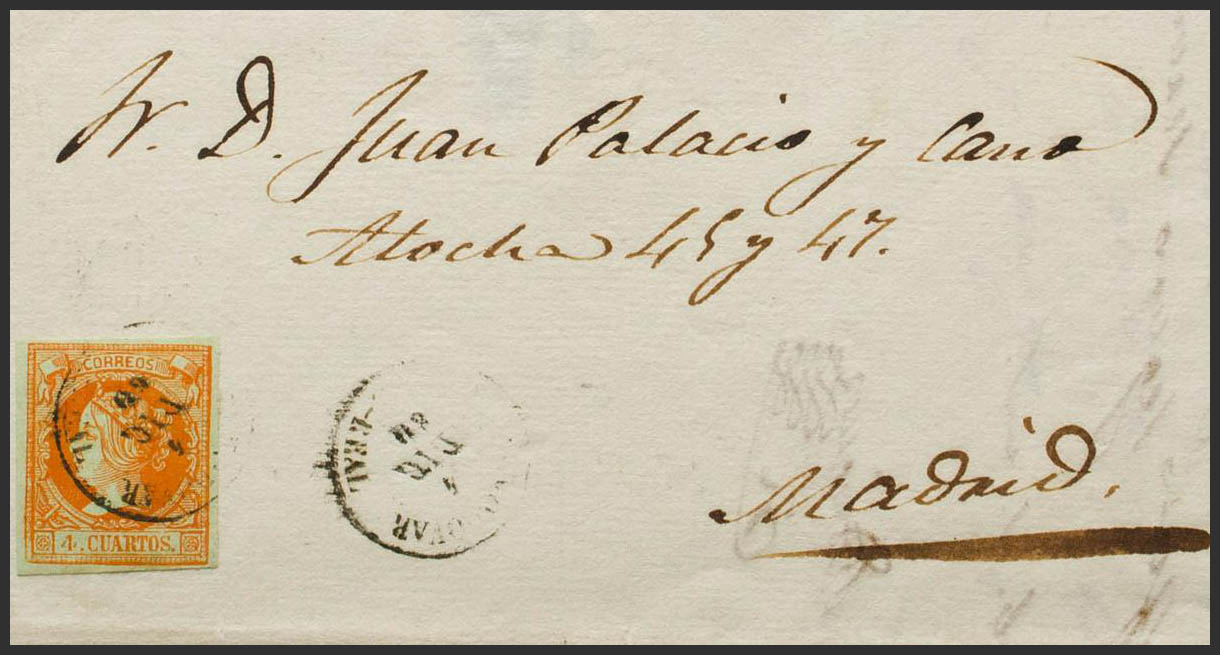 Sr. D. Juan Palacio y Cano
Atocha 45 y 47.
CORREOS
DIC
4 CUARTOS.
DIC
Madrid.